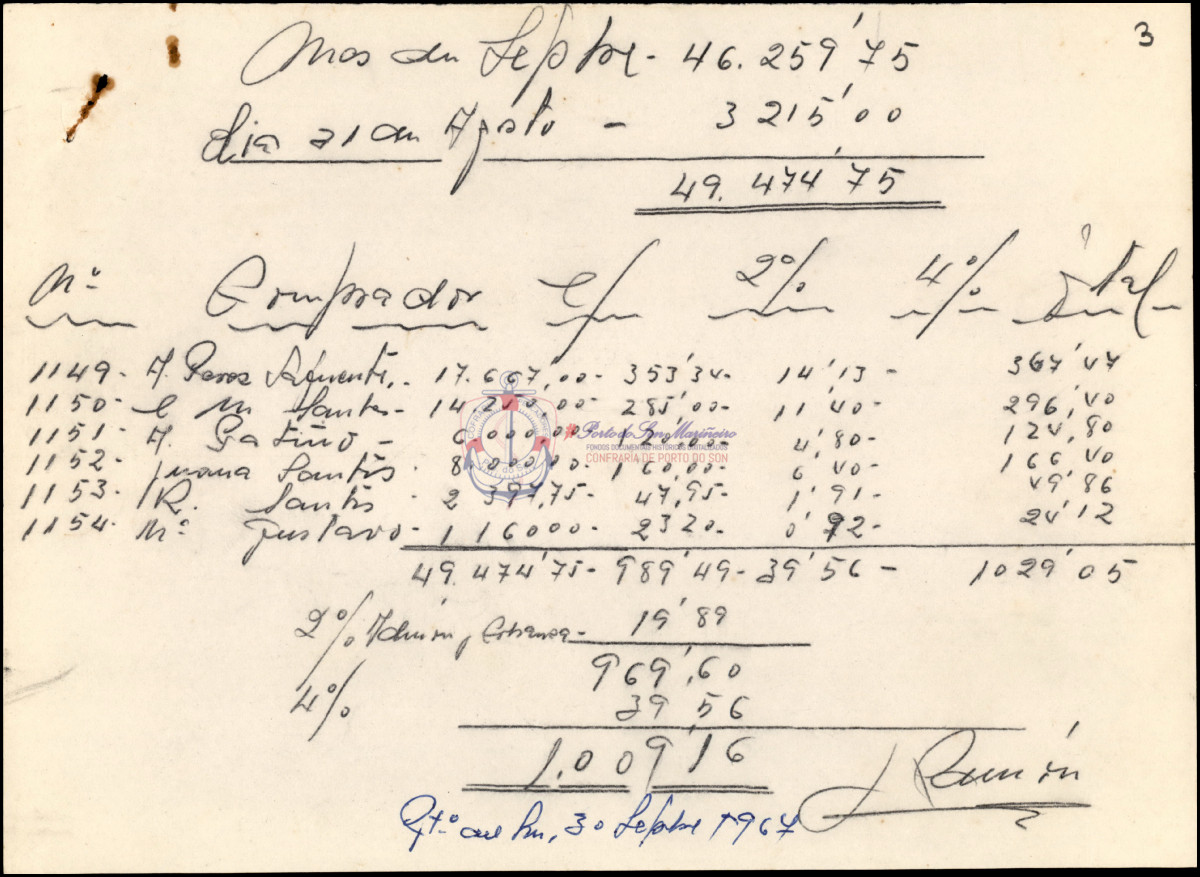 3
Mes de Septbre - 46.259'75
dia 31 de Agosto - 3215'00
49.474'75
Nº Comprador C/ 2% 4% Total
1149 - A. Peres Afuente. - 17.667,00 - 353'34 - 14'13 - 367'47
1150 - C M Santos - 14.250,00 - 285'00 - 11'40 - 296,40
1151 - A. Patiño - 6.000,00 - 120,00 - 4'80 - 124,80
1152 - Juana Santos - 8.000,00 - 160,00 - 6'40 - 166,40
1153 - R. Santos - 2.397,75 - 47,95 - 1'91 - 49'86
1154 - Mª Gustavo - 116000 - 2320 - 0'92 - 24'12
49.474'75 - 989'49 - 39'56 - 1029'05
2% Admón y Cobranza - 19'89
969,60
4% 39'56
1.009'16
Ramón
Ptº del Son, 30 Septbre 1967
COFRARÍA
Porto do Son Mariñeiro
FONDOS DOCUMENTAIS HISTÓRICOS DIXITALIZADOS
CONFRARÍA DE PORTO DO SON